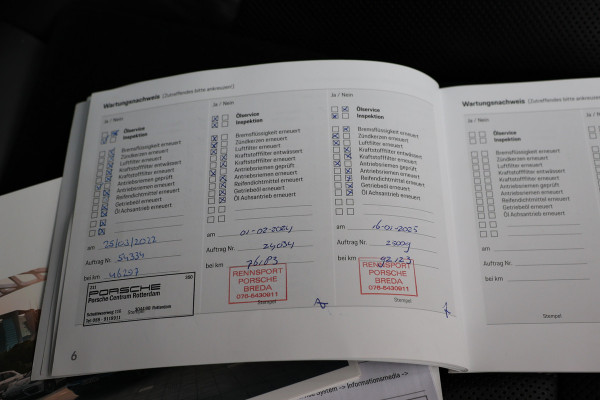 Wartungsnachweis (Zutreffendes bitte ankreuzen)
Ja / Nein
Ölservice
Inspektion
Bremsflüssigkeit erneuert
Zündkerzen erneuert
Luftfilter erneuert
Kraftstofffilter entwässert
Kraftstofffilter erneuert
Antriebsriemen geprüft
Antriebsriemen erneuert
Reifendichtmittel erneuert
Getriebeöl erneuert
Öl Achsantrieb erneuert
am 25/03/2022
Auftrag Nr. 54334
bei km 46257
PORSCHE
Porsche Centrum Rotterdam
Ja / Nein
Ölservice
Inspektion
Bremsflüssigkeit erneuert
Zündkerzen erneuert
Luftfilter erneuert
Kraftstofffilter entwässert
Kraftstofffilter erneuert
Antriebsriemen geprüft
Antriebsriemen erneuert
Reifendichtmittel erneuert
Getriebeöl erneuert
Öl Achsantrieb erneuert
am 01-02-2024
Auftrag Nr. 24034
bei km 76183
RENNSPORT
PORSCHE
BREDA
076-5430611
Stempel
Ja / Nein
Ölservice
Inspektion
Bremsflüssigkeit erneuert
Zündkerzen erneuert
Luftfilter erneuert
Kraftstofffilter entwässert
Kraftstofffilter erneuert
Antriebsriemen geprüft
Antriebsriemen erneuert
Reifendichtmittel erneuert
Getriebeöl erneuert
Öl Achsantrieb erneuert
am 16-01-2025
Auftrag Nr.
bei km 92123
RENNSPORT
PORSCHE
BREDA
076-5430611
Stempel
6
Wartungsnachweis (Zutreffendes bitte ankreuzen)
Ja / Nein
Ölservice
Inspektion
Bremsflüssigkeit erneuert
Zündkerzen erneuert
Luftfilter erneuert
Kraftstofffilter entwässert
Kraftstofffilter erneuert
Antriebsriemen geprüft
Antriebsriemen erneuert
Reifendichtmittel erneuert
Getriebeöl erneuert
Öl Achsantrieb erneuert
am
Auftrag Nr.
bei km
Stempel
System -> Informationsmedia ->